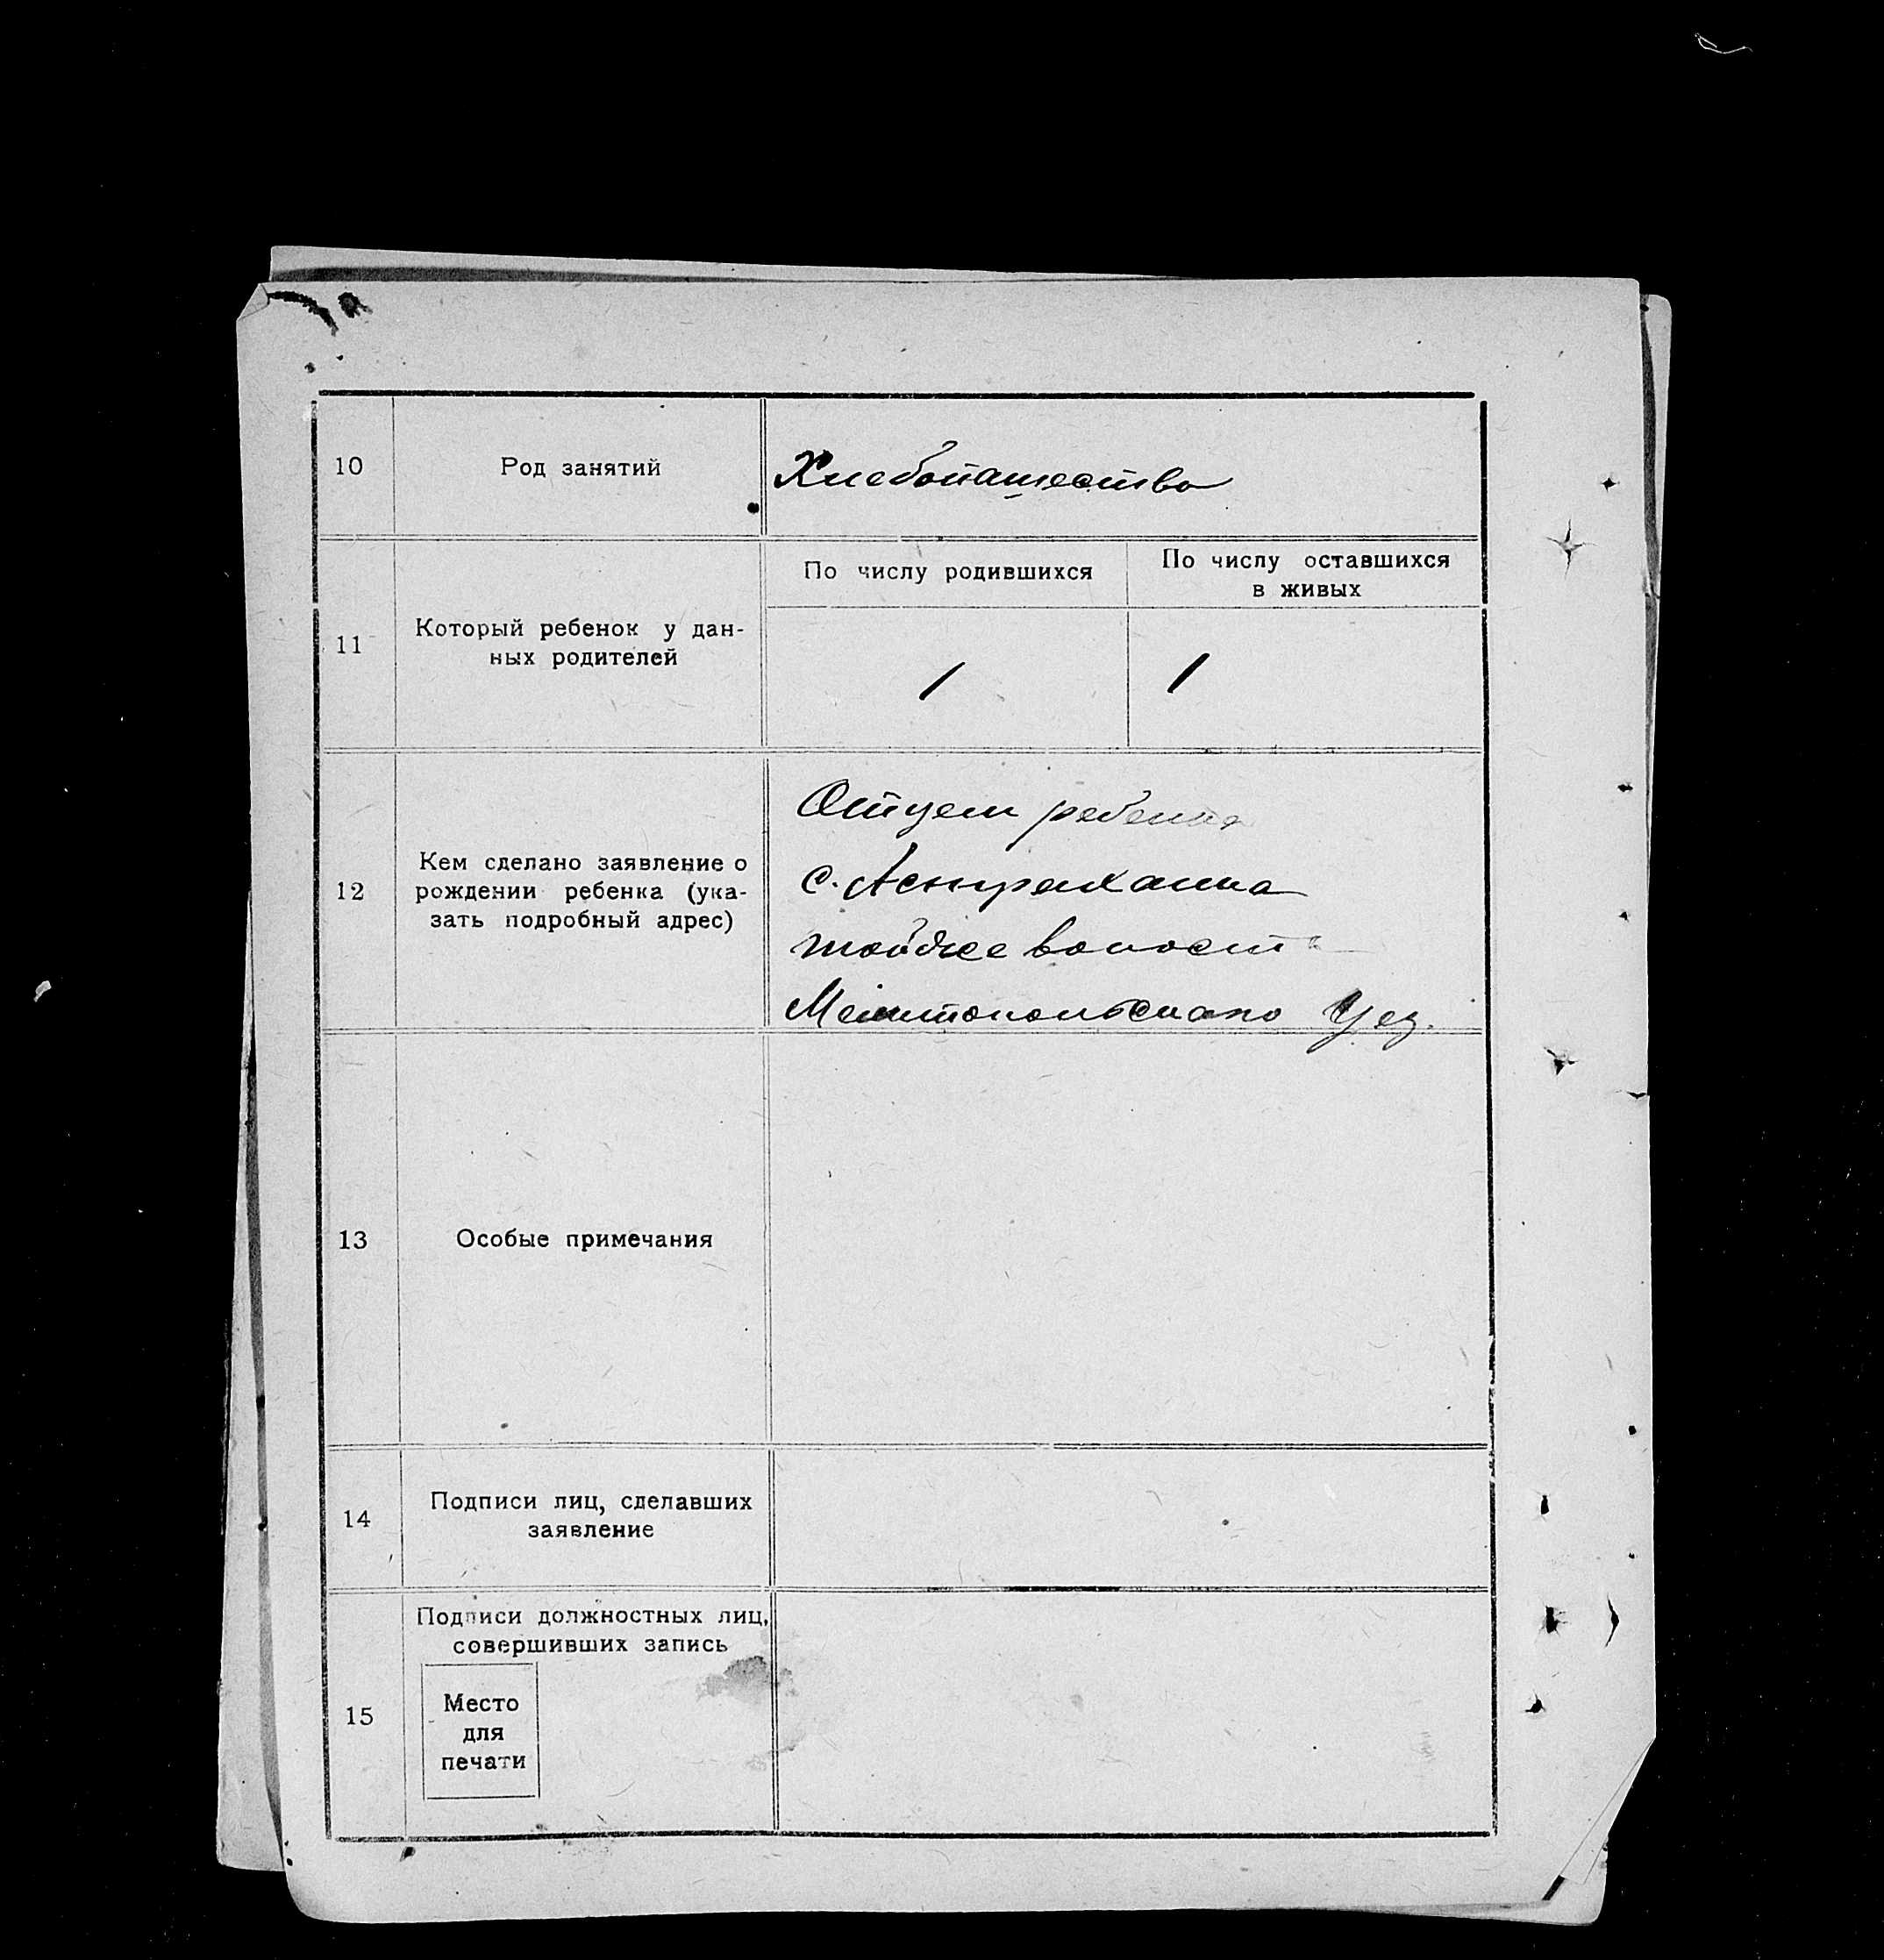 10
Род занятий
Хлебопашество
11
Который ребенок у дан-
ных родителей
По числу родившихся
По числу оставшихся
в живых
1
1
12
Кем сделано заявление о
рождении ребенка (ука-
зать подробный адрес)
Отцем ребенка
с. Астраханка
тойже волости
Мелитопольскаго Уез.
13
Особые примечания
14
Подписи лиц, сделавших
заявление
15
Подписи должностных лиц,
совершивших запись
Место
для
печати